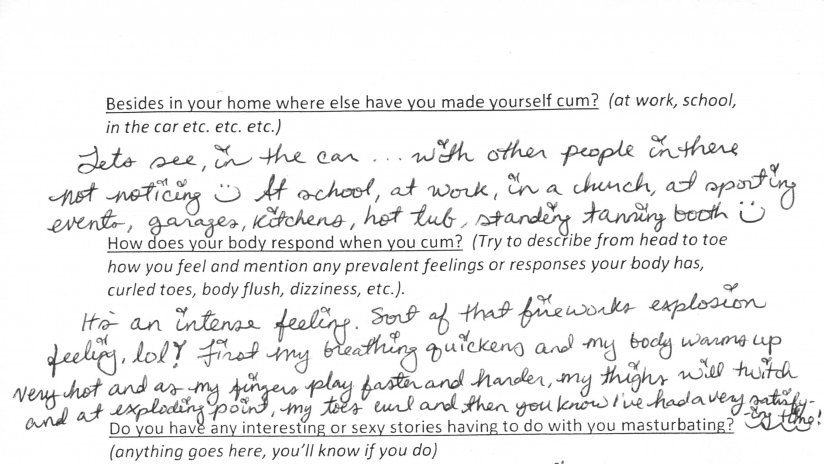 Besides in your home where else have you made yourself cum? (at work, school,
in the car etc. etc. etc.)
Lets see, in the car ... with other people in there
not noticing :) At school, at work, in a church, at sporting
events, garages, kitchens, hot tub, standing tanning booth :)
How does your body respond when you cum? (Try to describe from head to toe
how you feel and mention any prevalent feelings or responses your body has,
curled toes, body flush, dizziness, etc.).
It's an intense feeling. Sort of that fireworks explosion
feeling, lol! First my breathing quickens and my body warms up
very hot and as my fingers play faster and harder, my thighs will twitch
and at exploding point, my toes curl and then you know I've had a very satisfy-
ing time!
Do you have any interesting or sexy stories having to do with you masturbating?
(anything goes here, you'll know if you do)